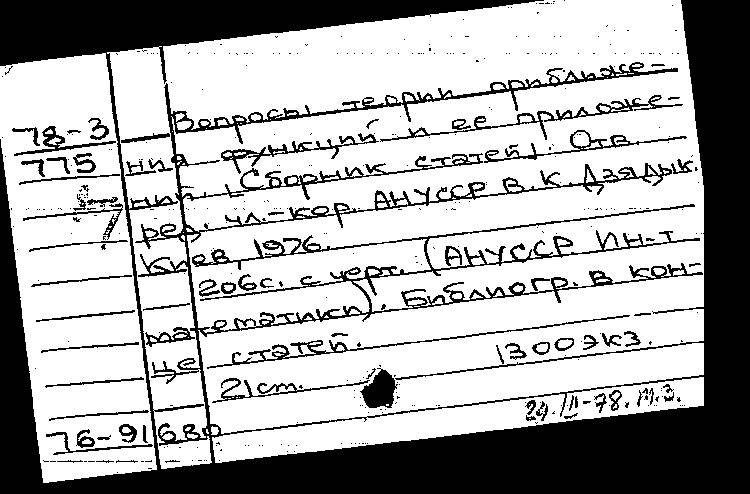 Вопросы теории приближе-
78-3
775
ния функций и ее приложе-
ний. [Сборник статей]. Отв.
ред. чл.-кор. АНУССР В.К. Дзядык.
Киев, 1976.
206с. с черт. (АНУССР Ин-т
математики). Библиогр. в кон-
це статей.
21см. 1300экз.
76-91680
29.III-78. м.з.